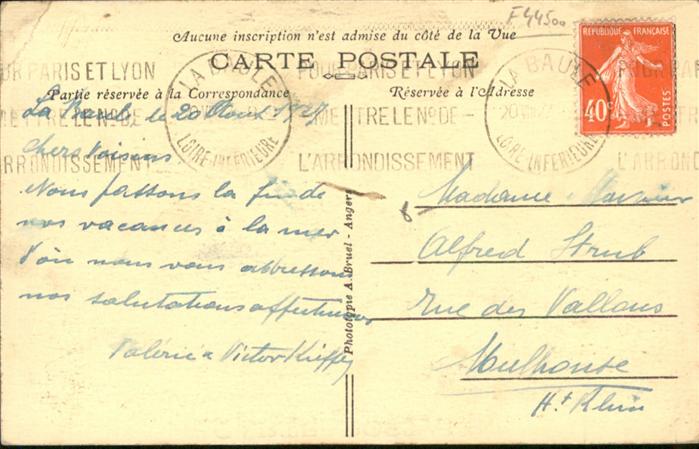 F 44500
Aucune inscription n'est admise du côté de la Vue
CARTE POSTALE
Partie réservée à la Correspondance
Réservée à l'Adresse
RÉPUBLIQUE FRANÇAISE
40c
POSTES
LA BAULE
LOIRE-INFÉRIEURE
POUR PARIS ET LYON
METTRE LE NO DE
L'ARRONDISSEMENT
LA BAULE
LOIRE-INFÉRIEURE
La Baule le 20 Août 1927
Chers Voisins
Nous passons la fin de
nos vacances à la mer
d'où nous vous adressons
nos salutations affectueuses
Valérie & Victor Kieffer
Phototypie A. Bruel - Angers
Madame
Alfred Strub
Rue des Vallons
Mulhouse
Ht Rhin